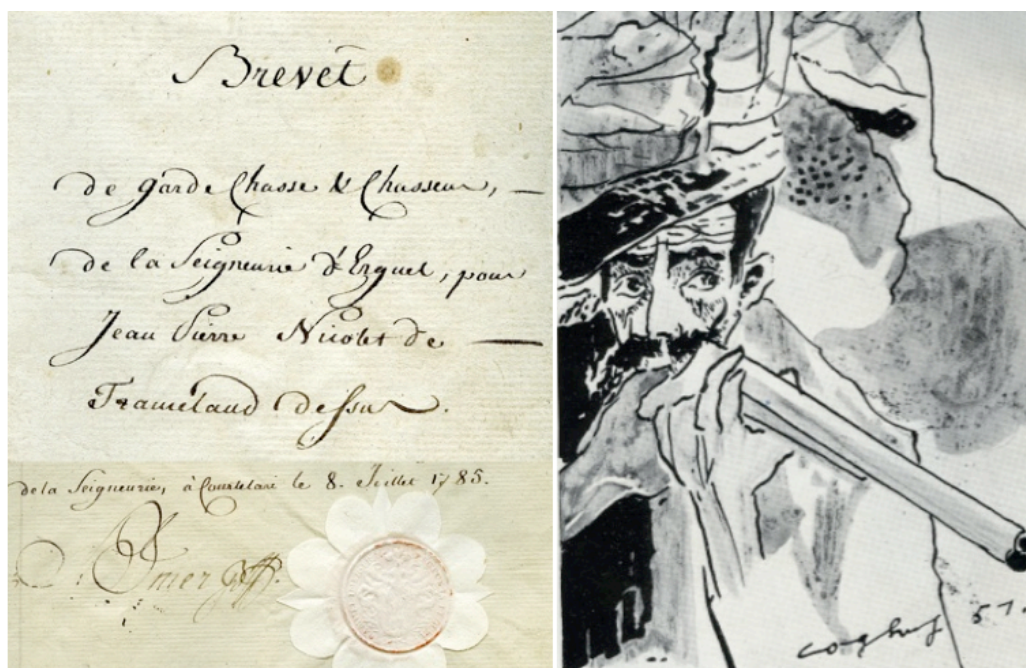 Brevet
de garde Chasse & Chasseur, —
de la Seigneurie d'Erguel, pour
Jean Pierre Nicolet de —
Tramelaud dessus.
de la Seigneurie, à Courtelari le 8. Juillet 1785.
coghuf 57.